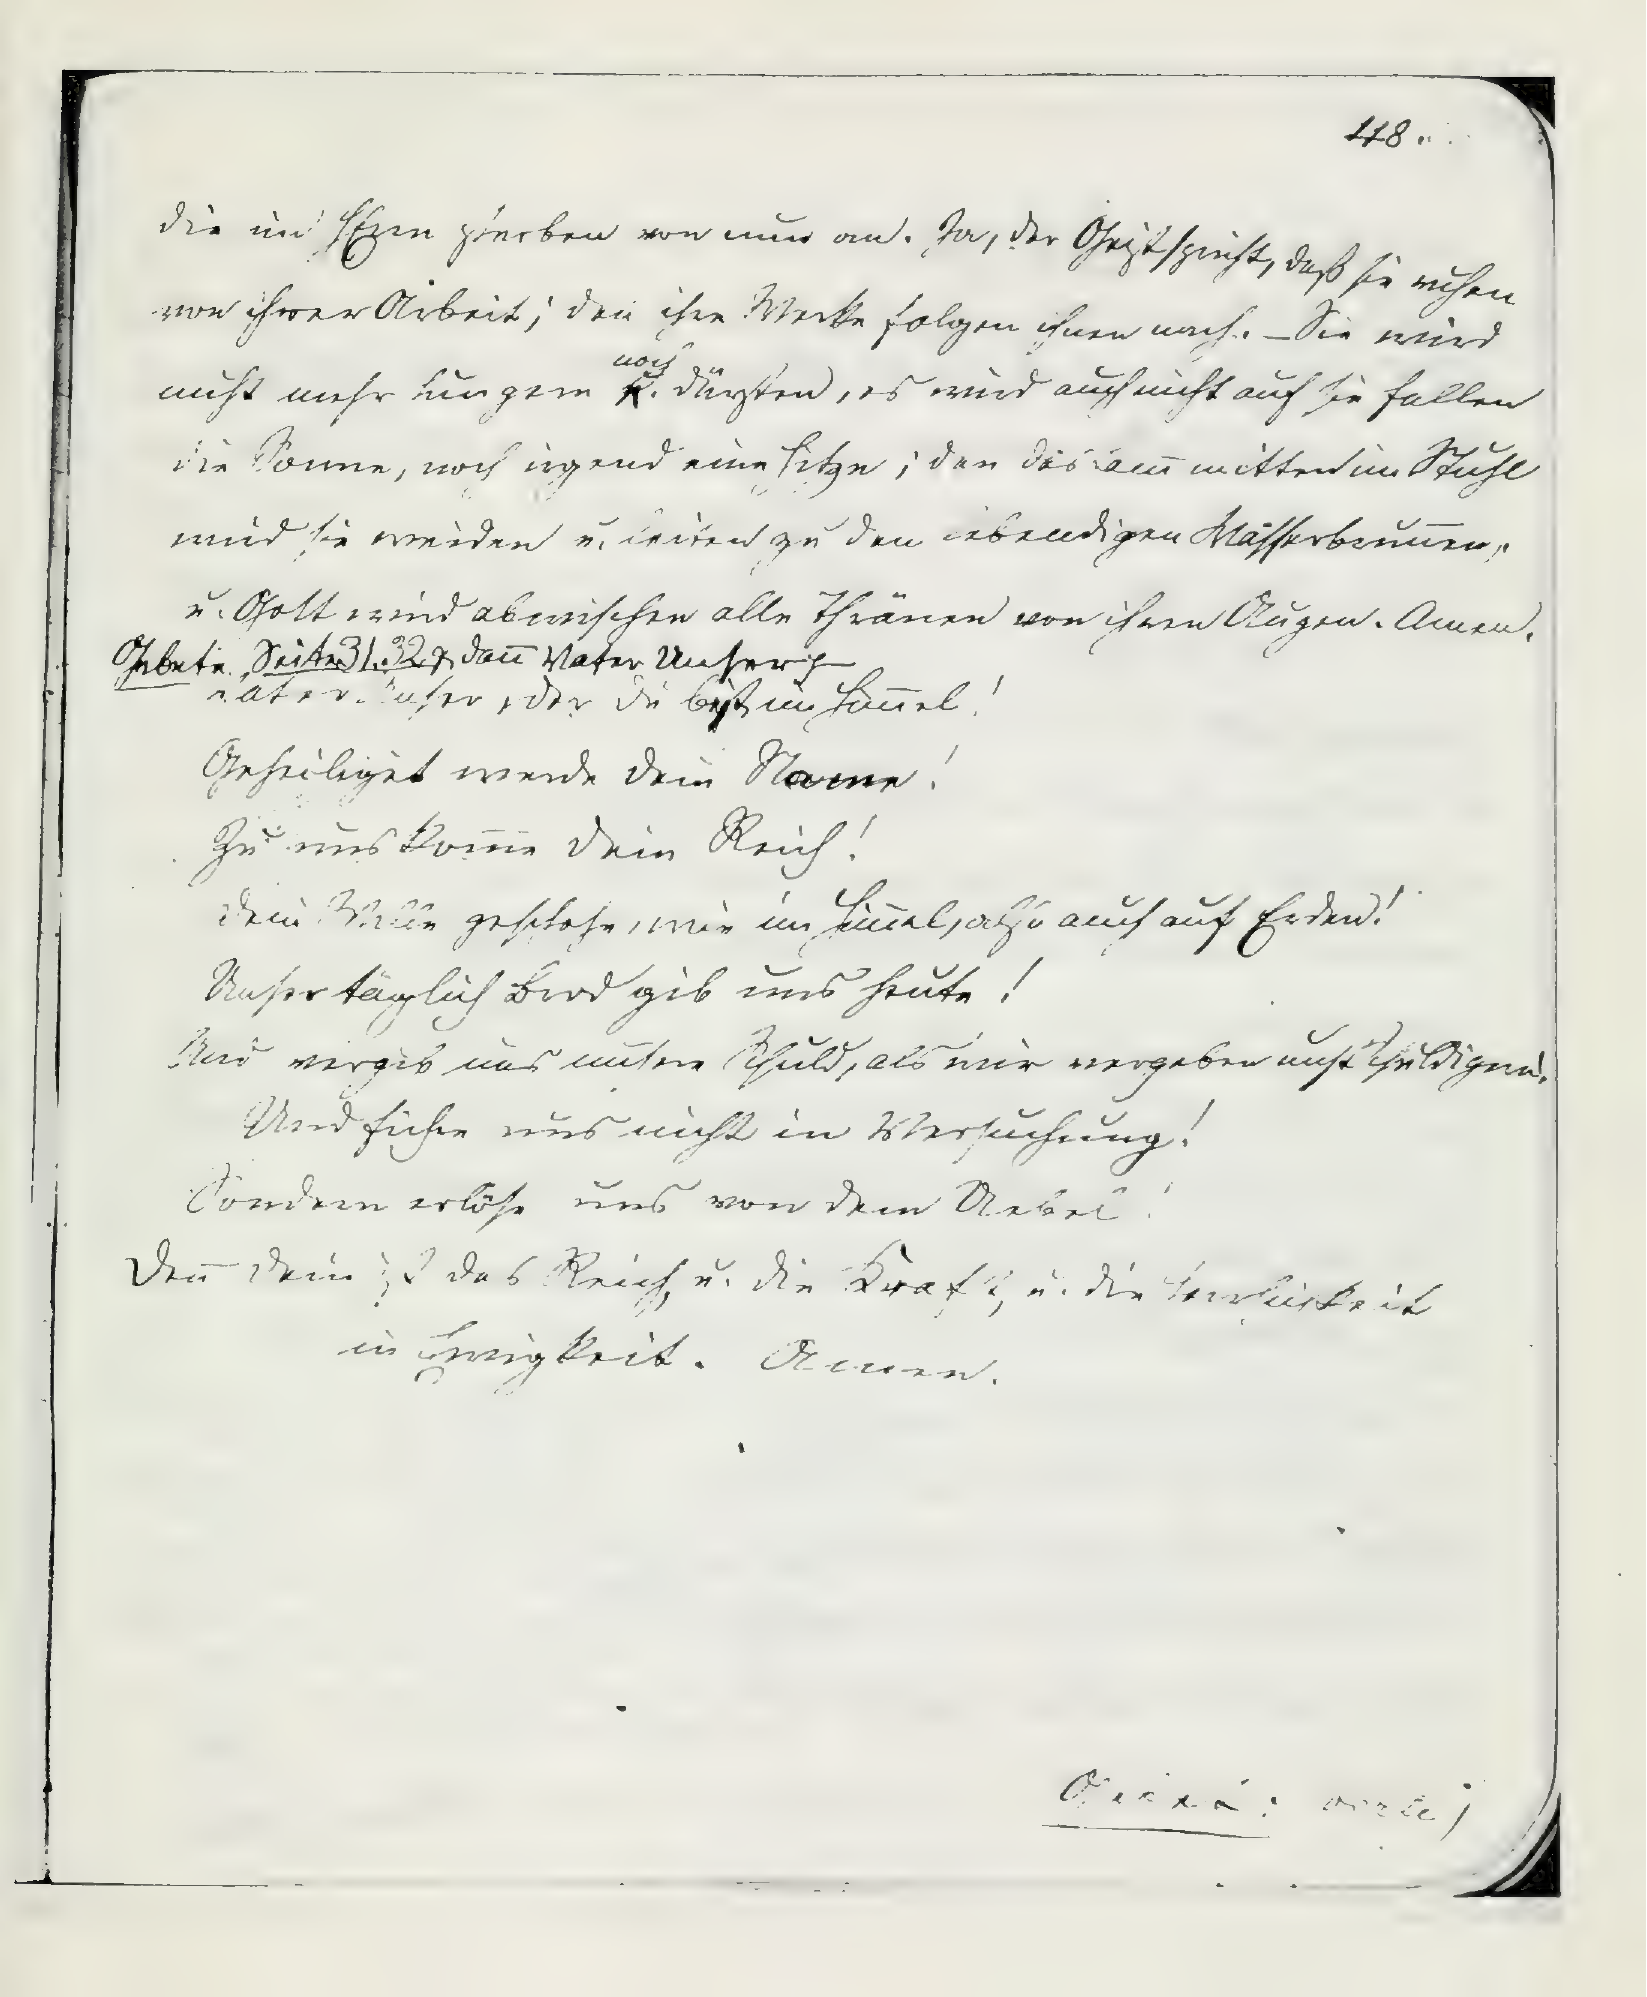 118.
die im HErrn sterben von nun an. Ja, der Geist spricht, daß sie ruhen
von ihrer Arbeit; deñ ihre Werke folgen ihnen nach. – Sie wird
noch
nicht mehr hungern u. dürsten, es wird auch nicht auf sie fallen
die Sonne, noch irgend eine Hitze; den das Lam̄ mitten im Stuhl
wird sie weiden u. leiten zu den lebendigen Wasserbrun̄en,
u. Gott wird abwischen alle Thränen von ihren Augen. Amen.
Gebete Seite 31. 32 dan̄ Vater Unser
Vater Unser, der du bist im Him̄el!
Geheiliget werde dein Name!
Zu uns kom̄e dein Reich!
Dein Wille geschehe, wie im Him̄el, also auch auf Erden!
Unser täglich Brod gib uns heute!
Und vergib uns unsere Schuld, als wir vergeben uns. Schuldigern.
Und führe uns nicht in Versuchung!
Sondern erlöse uns von dem Uebel!
Den̄ dein ist das Reich, u. die Kraft, u. die Herrlichkeit
in Ewigkeit. Amen.